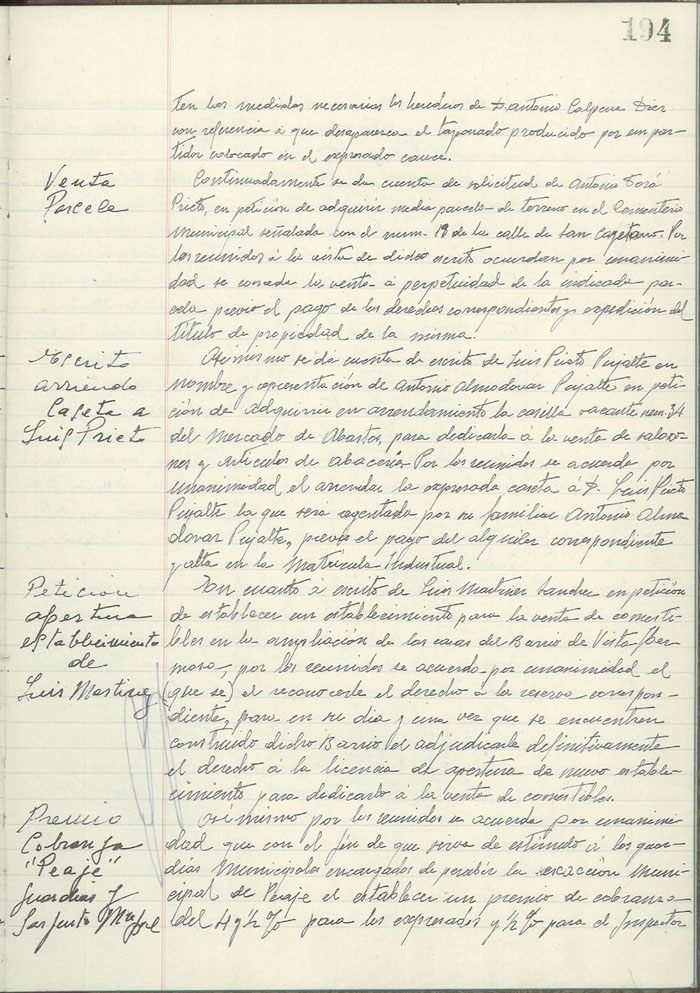 194
ten las medidas necesarias los herederos de D. Antonio Calpena Diez
con referencia á que desaparezca el taponado producido por un par-
tidor colocado en el expresado cauce.
Venta
Parcela
Continuadamente se da cuenta de solicitud de Antonio
Prieto, en petición de adquirir media parcela de terreno en el Cementerio
Municipal señalada con el num. 18 de la calle de San Cayetano. Por
los reunidos á la vista de dicho escrito acuerdan por unanimi-
dad se conceda la venta á perpetuidad de la indicada par-
cela previo el pago de los derechos correspondientes y expedición del
título de propiedad de la misma.
Escrito
arriendo
Caseta a
Luis Prieto
Asimismo se dá cuenta de escrito de Luis Prieto Pujalte en
nombre y representación de Antonio Almodovar Pujalte en peti-
ción de adquirir en arrendamiento la casilla vacante num. 34
del Mercado de Abastos, para dedicarla á la venta de salazo-
nes y artículos de abacería. Por los reunidos se acuerda por
unanimidad el arrendar la expresada caseta á D. Luis Prieto
Pujalte la que será regentada por su familiar Antonio Almo-
dovar Pujalte, previo el pago del alquiler correspondiente
y alta en la Matricula Industrial.
Peticion
apertura
establecimiento
de
Luis Martinez
En cuanto á escrito de Luis Martinez Sanchez en petición
de establecer un establecimiento para la venta de comesti-
bles en la ampliación de las casas del Barrio de Vista Her-
mosa, por los reunidos se acuerda por unanimidad el
(que se) el reconocerle el derecho á la reserva correspon-
diente, para en su dia y una vez que se encuentren
construido dicho Barrio el adjudicarle definitivamente
el derecho á la licencia de apertura de nuevo estable-
cimiento para dedicarlo á la venta de comestibles.
Premio
Cobranza
"Peaje"
Guardias y
Sargento
Asimismo por los reunidos se acuerda por unanimi-
dad que con el fin de que sirva de estímulo á los guar-
dias Municipales encargados de percibir la exacción Muni-
cipal de Peaje el establecer un premio de cobranza
del 4 y ½ % para los expresados y ½ % para el Inspector